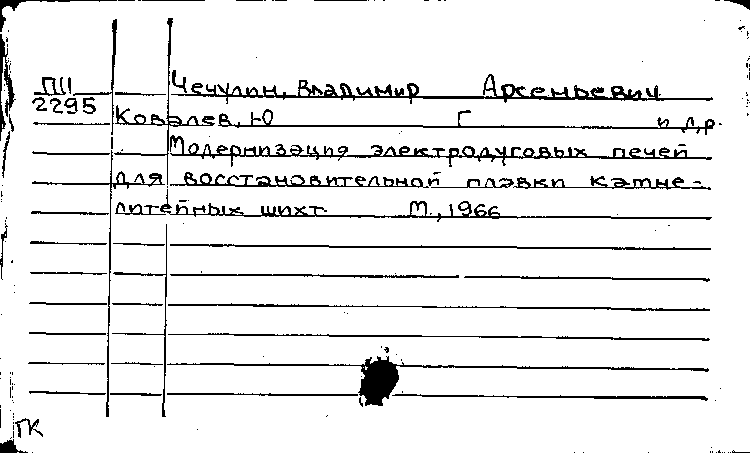 ПП Чечулин, Владимир Арсеньевич
2295 Ковалев, Ю Г и др.
Модернизация электродуговых печей
для восстановительной плавки камне-
литейных шихт. М., 1966
ГК